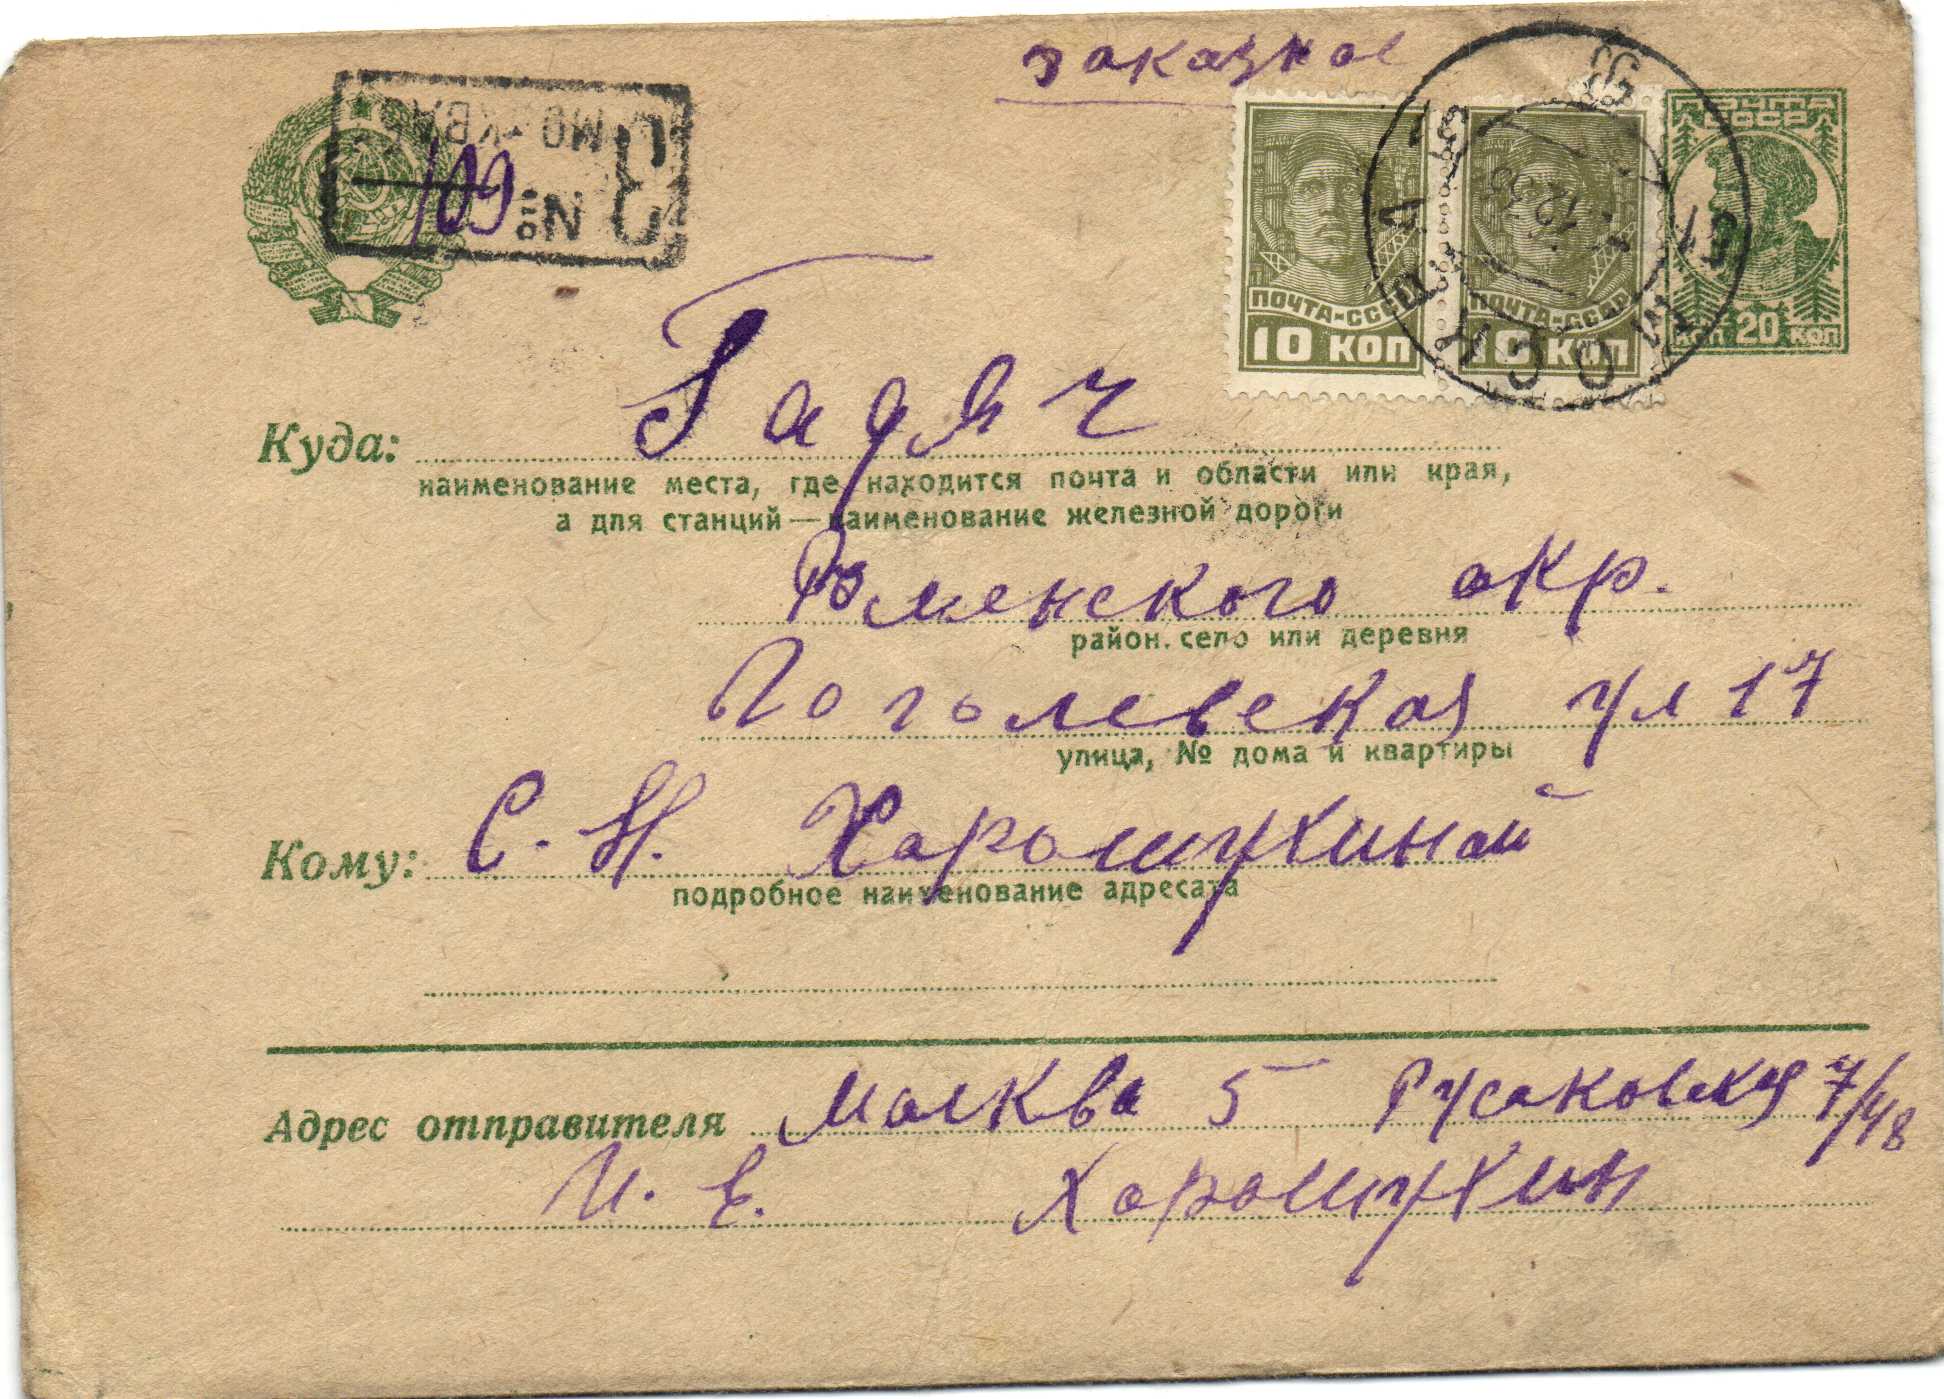 заказное
МОСКВА
З № 109
ПОЧТА
СССР
ПОЧТА-СССР
10 КОП
ПОЧТА-СССР
10 КОП
КОП 20 КОП
МОСКВА
Куда: Гадяч
наименование места, где находится почта и области или края,
а для станций — наименование железной дороги
Роменского окр.
район, село или деревня
Гоголевская ул 17
улица, № дома и квартиры
Кому: С. Н. Харошухиной
подробное наименование адресата
Адрес отправителя Москва 5 Русаковская 7/48
И. Е. Хорошухин